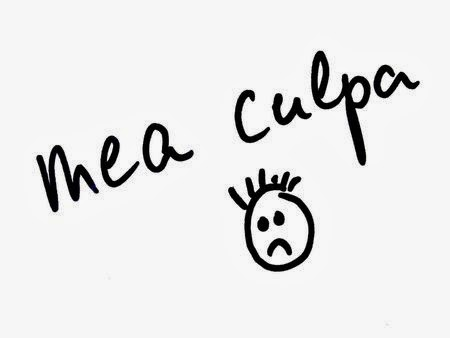 mea culpa